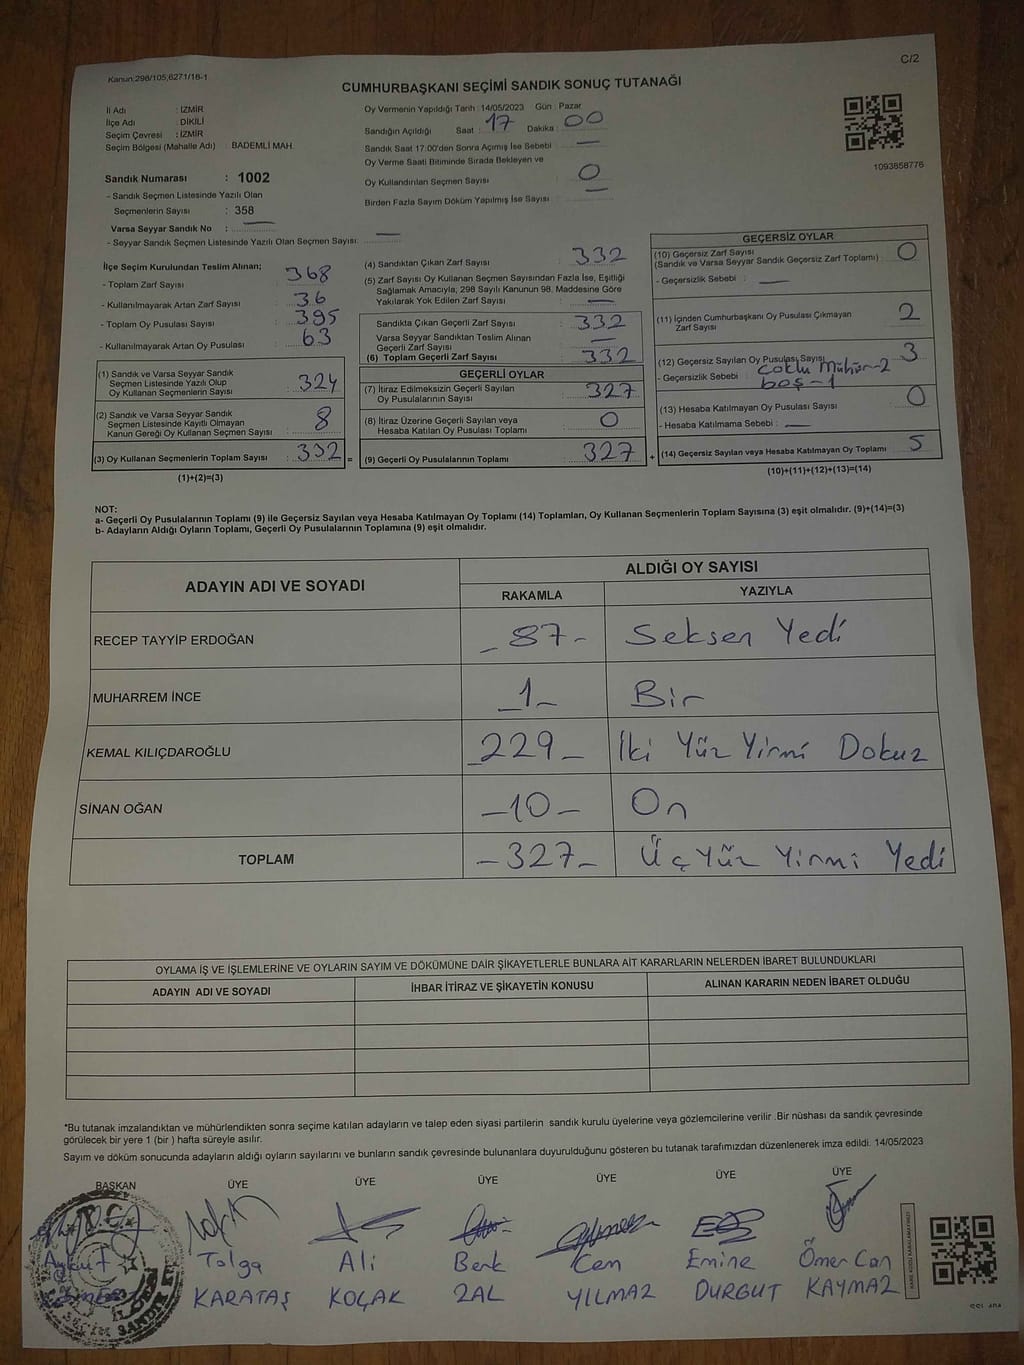 Kanun:298/105,6271/16-1
C/2
CUMHURBAŞKANI SEÇİMİ SANDIK SONUÇ TUTANAĞI
İl Adı : İZMİR
İlçe Adı : DİKİLİ
Seçim Çevresi : İZMİR
Seçim Bölgesi (Mahalle Adı) : BADEMLİ MAH.
Oy Vermenin Yapıldığı Tarih : 14/05/2023 Gün : Pazar
Sandığın Açıldığı Saat : 17 Dakika : 00
Sandık Saat 17:00'den Sonra Açmış İse Sebebi : —
Oy Verme Saati Bitiminde Sırada Bekleyen ve
Oy Kullandırılan Seçmen Sayısı : 0
Birden Fazla Sayım Döküm Yapılmış İse Sayısı : —
1093858776
Sandık Numarası : 1002
- Sandık Seçmen Listesinde Yazılı Olan
Seçmenlerin Sayısı : 358
Varsa Seyyar Sandık No : —
- Seyyar Sandık Seçmen Listesinde Yazılı Olan Seçmen Sayısı: —
İlçe Seçim Kurulundan Teslim Alınan;
- Toplam Zarf Sayısı : 368
- Kullanılmayarak Artan Zarf Sayısı : 36
- Toplam Oy Pusulası Sayısı : 395
- Kullanılmayarak Artan Oy Pusulası : 63
(1) Sandık ve Varsa Seyyar Sandık
Seçmen Listesinde Yazılı Olup
Oy Kullanan Seçmenlerin Sayısı : 324
(2) Sandık ve Varsa Seyyar Sandık
Seçmen Listesinde Kayıtlı Olmayan
Kanun Gereği Oy Kullanan Seçmen Sayısı : 8
(3) Oy Kullanan Seçmenlerin Toplam Sayısı : 332 =
(1)+(2)=(3)
(4) Sandıktan Çıkan Zarf Sayısı : 332
(5) Zarf Sayısı Oy Kullanan Seçmen Sayısından Fazla İse, Eşitliği
Sağlamak Amacıyla; 298 Sayılı Kanunun 98. Maddesine Göre
Yakılarak Yok Edilen Zarf Sayısı : —
Sandıkta Çıkan Geçerli Zarf Sayısı : 332
Varsa Seyyar Sandıktan Teslim Alınan
Geçerli Zarf Sayısı : —
(6) Toplam Geçerli Zarf Sayısı : 332
GEÇERLİ OYLAR
(7) İtiraz Edilmeksizin Geçerli Sayılan
Oy Pusulalarının Sayısı : 327
(8) İtiraz Üzerine Geçerli Sayılan veya
Hesaba Katılan Oy Pusulası Toplamı : 0
(9) Geçerli Oy Pusulalarının Toplamı : 327 +
GEÇERSİZ OYLAR
(10) Geçersiz Zarf Sayısı
(Sandık ve Varsa Seyyar Sandık Geçersiz Zarf Toplamı) : 0
- Geçersizlik Sebebi : —
(11) İçinden Cumhurbaşkanı Oy Pusulası Çıkmayan
Zarf Sayısı : 2
(12) Geçersiz Sayılan Oy Pusulası Sayısı : 3
- Geçersizlik Sebebi : Çoklu Mühür-2
boş-1
(13) Hesaba Katılmayan Oy Pusulası Sayısı : 0
- Hesaba Katılmama Sebebi : —
(14) Geçersiz Sayılan veya Hesaba Katılmayan Oy Toplamı : 5
(10)+(11)+(12)+(13)=(14)
NOT:
a- Geçerli Oy Pusulalarının Toplamı (9) ile Geçersiz Sayılan veya Hesaba Katılmayan Oy Toplamı (14) Toplamları, Oy Kullanan Seçmenlerin Toplam Sayısına (3) eşit olmalıdır. (9)+(14)=(3)
b- Adayların Aldığı Oyların Toplamı, Geçerli Oy Pusulalarının Toplamına (9) eşit olmalıdır.
ADAYIN ADI VE SOYADI
ALDIĞI OY SAYISI
RAKAMLA YAZIYLA
RECEP TAYYİP ERDOĞAN -87- Seksen Yedi
MUHARREM İNCE -1- Bir
KEMAL KILIÇDAROĞLU -229- İki Yüz Yirmi Dokuz
SİNAN OĞAN -10- On
TOPLAM -327- Üç Yüz Yirmi Yedi
OYLAMA İŞ VE İŞLEMLERİNE VE OYLARIN SAYIM VE DÖKÜMÜNE DAİR ŞİKAYETLERLE BUNLARA AİT KARARLARIN NELERDEN İBARET BULUNDUKLARI
ADAYIN ADI VE SOYADI İHBAR İTİRAZ VE ŞİKAYETİN KONUSU ALINAN KARARIN NEDEN İBARET OLDUĞU
*Bu tutanak imzalandıktan ve mühürlendikten sonra seçime katılan adayların ve talep eden siyasi partilerin sandık kurulu üyelerine veya gözlemcilerine verilir .Bir nüshası da sandık çevresinde
görülecek bir yere 1 (bir ) hafta süreyle asılır.
Sayım ve döküm sonucunda adayların aldığı oyların sayılarını ve bunların sandık çevresinde bulunanlara duyurulduğunu gösteren bu tutanak tarafımızdan düzenlenerek imza edildi. 14/05/2023
BAŞKAN ÜYE ÜYE ÜYE ÜYE ÜYE ÜYE
Aykut Tolga Ali Berk Cem Emine Ömer Can
KARATAŞ KOÇAK ZAL YILMAZ DURGUT KAYMAZ